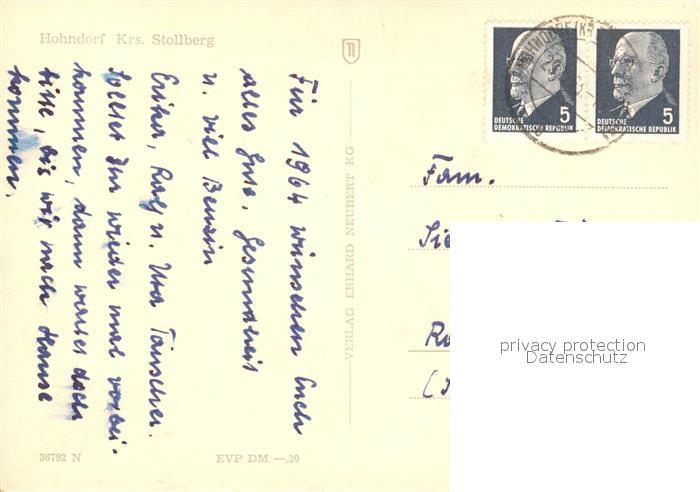 Hohndorf Krs. Stollberg
Für 1964 wünschen Euch
alles Gute, Gesundheit
u. viel Benzin
Erika, Ralf u. Uta Tauscher.
Solltet Ihr wieder mal vorbei-
kommen, dann wartet doch
bitte, bis wir nach Hause
kommen.
VERLAG ERHARD NEUBERT KG
36792 N
EVP DM —,20
5
DEUTSCHE
DEMOKRATISCHE REPUBLIK
5
DEUTSCHE
DEMOKRATISCHE REPUBLIK
Fam.
privacy protection
Datenschutz